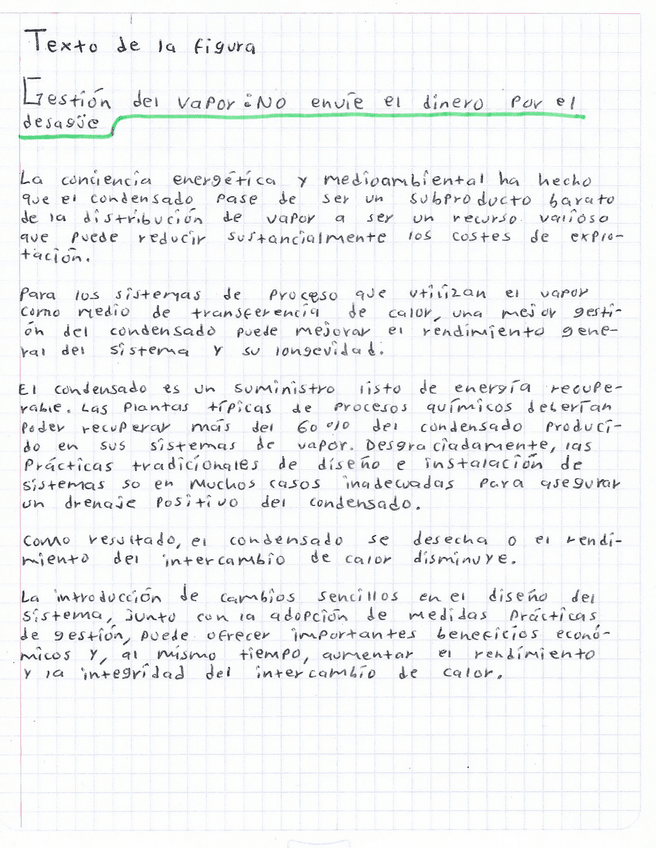 Texto de la figura
Gestión del vapor ¡No envíe el dinero por el
desagüe
La conciencia energética y medioambiental ha hecho
que el condensado pase de ser un subproducto barato
de la distribución de vapor a ser un recurso valioso
que puede reducir sustancialmente los costes de explo-
tación.
Para los sistemas de proceso que utilizan el vapor
como medio de transferencia de calor, una mejor gesti-
ón del condensado puede mejorar el rendimiento gene-
ral del sistema y su longevidad.
El condensado es un suministro listo de energía recupe-
rable. Las plantas típicas de procesos químicos deberían
poder recuperar más del 60 0/0 del condensado produci-
do en sus sistemas de vapor. Desgraciadamente, las
prácticas tradicionales de diseño e instalación de
sistemas so en muchos casos inadecuadas para asegurar
un drenaje positivo del condensado.
Como resultado, el condensado se desecha o el rendi-
miento del intercambio de calor disminuye.
La introducción de cambios sencillos en el diseño del
sistema, junto con la adopción de medidas prácticas
de gestión, puede ofrecer importantes beneficios econó-
micos y, al mismo tiempo, aumentar el rendimiento
y la integridad del intercambio de calor.